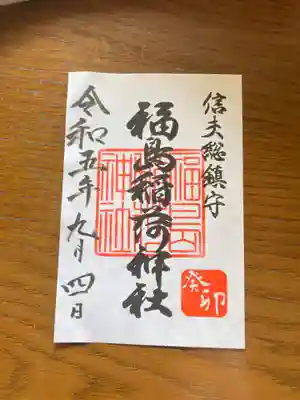 信夫総鎮守
福島稲荷神社
令和五年九月四日
癸卯